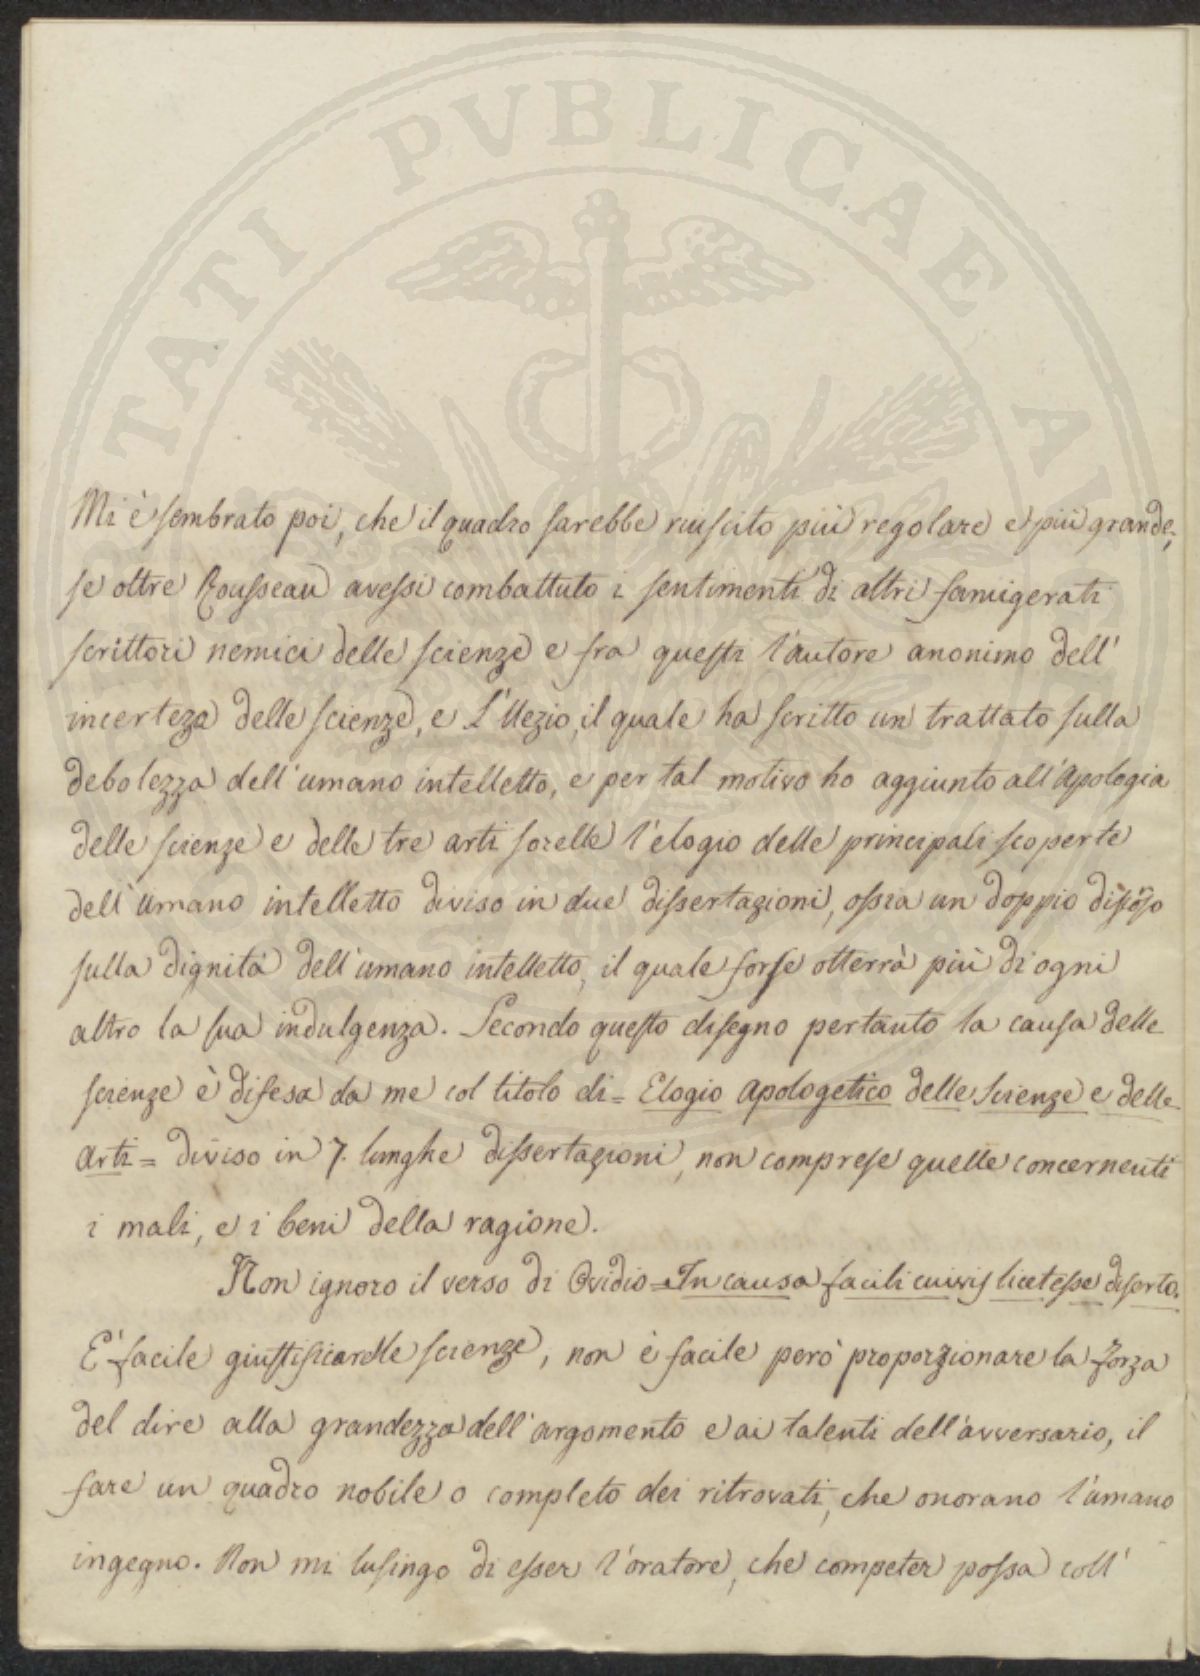 TATI PVBLICAE AV
Mi è sembrato poi, che il quadro sarebbe riuscito più regolare e più grande,
se oltre Rousseau avessi combattuto i sentimenti di altri famigerati
scrittori nemici delle scienze e fra questi l'autore anonimo dell'
incerteza delle scienze, e L'Uezio, il quale ha scritto un trattato sulla
debolezza dell'umano intelletto, e per tal motivo ho aggiunto all'Apologia
delle scienze e delle tre arti sorelle l'elogio delle principali scoperte
dell'umano intelletto diviso in due dissertazioni, ossia un doppio
sulla dignità dell'umano intelletto, il quale forse otterrà più di ogni
altro la sua indulgenza. Secondo questo disegno pertanto la causa delle
scienze è difesa da me col titolo di = Elogio apologetico delle Scienze e delle
arti = diviso in 7. lunghe dissertazioni, non comprese quelle concernenti
i mali, e i beni della ragione.
Non ignoro il verso di Ovidio = In causa facili cuivis licet esse diserto.
E' facile giustificare le scienze, non è facile però proporzionare la forza
del dire alla grandezza dell'argomento e ai talenti dell'avversario, il
fare un quadro nobile o completo dei ritrovati, che onorano l'umano
ingegno. Non mi lusingo di esser l'oratore, che competer possa coll'